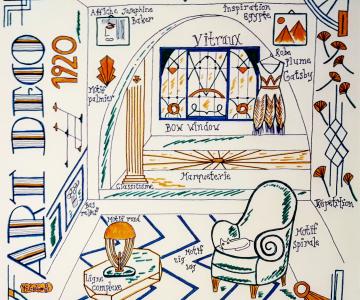 ART DECO
1920
Affiche Josephine
Baker
Inspiration
Egypte
Vitraux
Robe
Plume
Gatsby
Motif
palmier
Bow Window
Marqueterie
Classicisme
Bas
relief
Motif rond
Motif
zig
zag
Motif
spirale
Répétition
Ligne
complexe